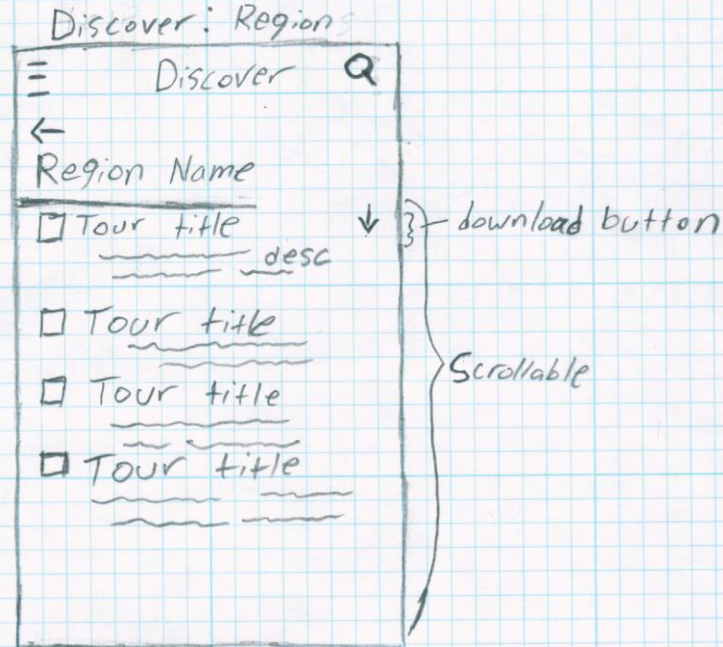 Discover: Regions
Discover
Region Name
Tour title
download button
desc
Tour title
Scrollable
Tour title
Tour title